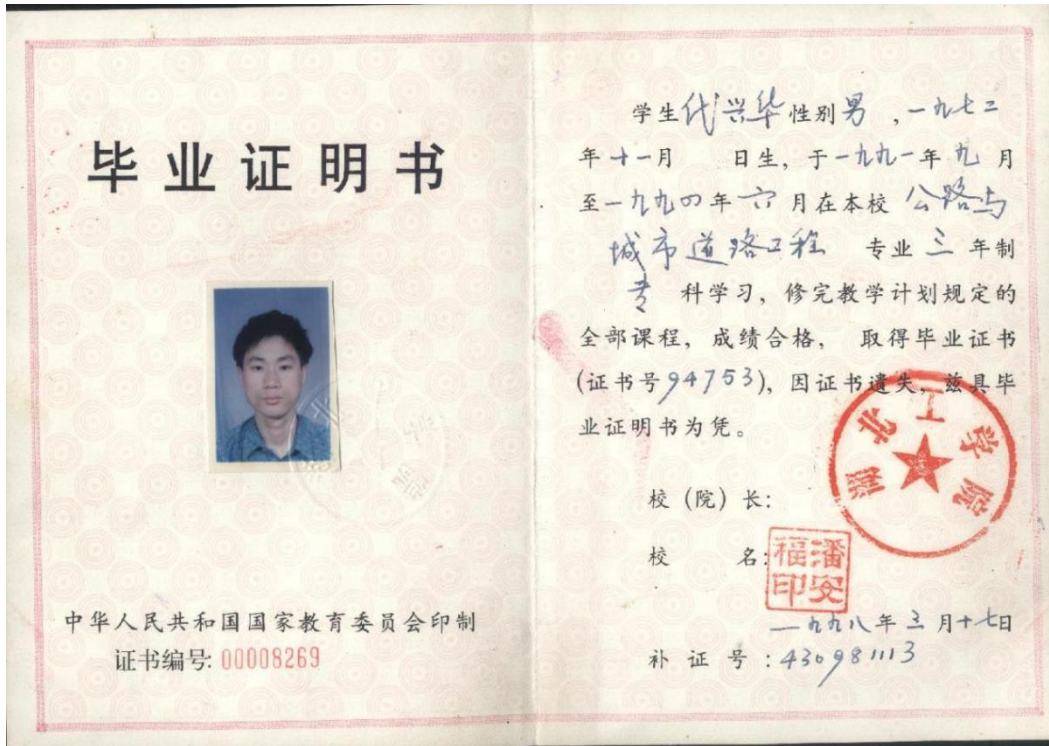 毕业证明书
中华人民共和国国家教育委员会印制
证书编号: 00008269
学生代兴华性别男,一九七二
年十一月 日生,于一九九一年九月
至一九九四年六月在本校 公路与
城市道路工程 专业三年制
专 科学习,修完教学计划规定的
全部课程,成绩合格, 取得毕业证书
(证书号94753),因证书遗失,兹具毕
业证明书为凭。
湖北工学院
校(院)长:
校 名:
潘安福印
一九九八年三月十七日
补证号:430981113